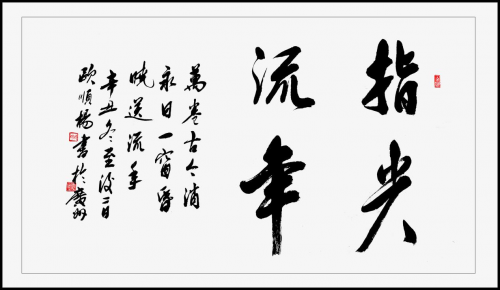 指尖
流年
萬卷古今消
永日一窗昏
曉送流年
辛丑冬至後二日
歐順楊書於廣州